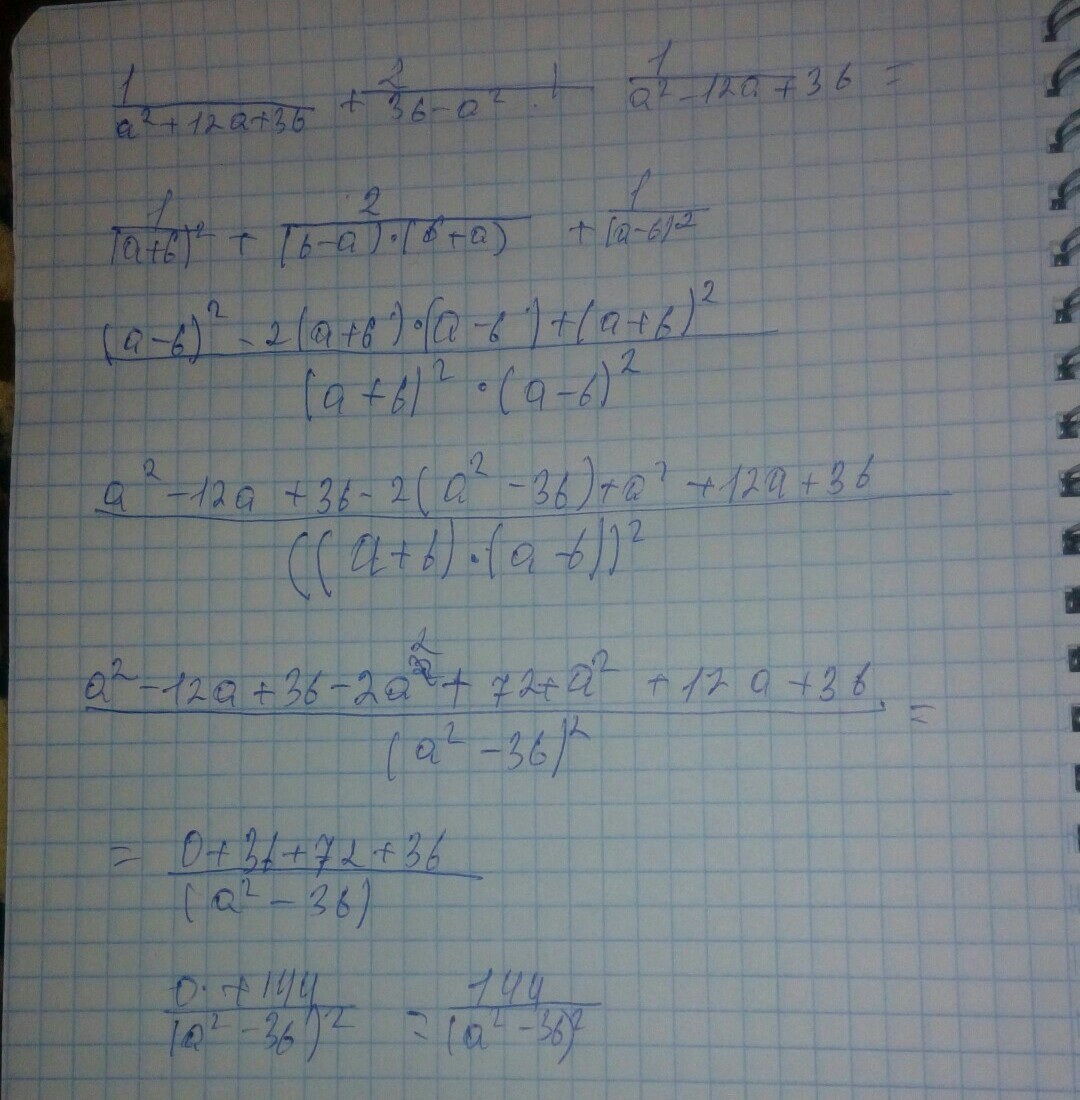 1/(a²+12a+36) + 2/(36-a²) + 1/(a²-12a+36) =
1/(a+6)² + 2/((6-a)·(6+a)) + 1/(a-6)²
((a-6)² - 2(a+6)·(a-6)+(a+6)²)/((a+6)²·(a-6)²)
(a²-12a+36-2(a²-36)+a²+12a+36)/(((a+6)·(a-6))²)
(a²-12a+36-2a²+72+a²+12a+36)/((a²-36)²) =
= (0+36+72+36)/(a²-36)
(0+144)/(a²-36)² = 144/(a²-36)²